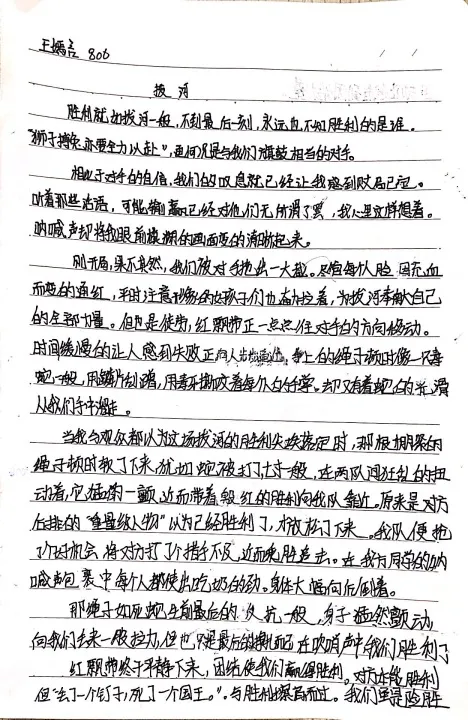 806
拔河
胜利就如拔河一般,不到最后一刻,永远也不知胜利的是谁。
"狮子搏兔亦要全力以赴",更何况是与我们旗鼓相当的对手。
相比于对手的自信,我们的叹息就已经让我感到败局已定。
听着那些话语,可能输赢已经对他们无所谓了罢,我心里这样想着。
呐喊声却将我眼前模糊的画面变的清晰起来。
刚开局,果不其然,我们被对手抢出一大截。只见每个人脸因充血
而变的通红,平时注意形象的女孩子们也奋力拉着,为拔河奉献自己
的全部力量。但也是徒劳,红飘带正一点点往对手的方向移动。
时间缓慢的让人感到失败正向人步步逼近。手上的绳子顿时像一只毒
蛇一般,用鳞片刮蹭,用毒牙撕咬着每个人的手掌。却又有着蛇的光滑
从我们手中溜走。
当我与观众都以为这场拔河的胜利失埃落定时,那根绷紧的
绳子顿时软了下来,犹如蛇被打七寸一般,在两队间狂乱的扭
动着,它猛的一颤,进而带着殷红的胜利向我队靠近。原来是对方
后排的"重量级人物"以为已经胜利了,才放松了下来。我队便抢
了个好机会,将对方打了个措手不及,进而乘胜追击。在我方同学的呐
喊声包裹中每个人都使出吃奶的劲。身体大幅向后倒着。
那绳子如死蛇生前最后的反抗一般,身子猛然颤动,
向我们去来一股拉力,但也只是最后的挣扎而已,在吹哨声中,我们胜利了
红飘带终于平静下来,团结使我们赢得胜利。对方在能胜利
但"丢了一个钉子,死了一个国王。"。与胜利擦肩而过。我们更是险胜